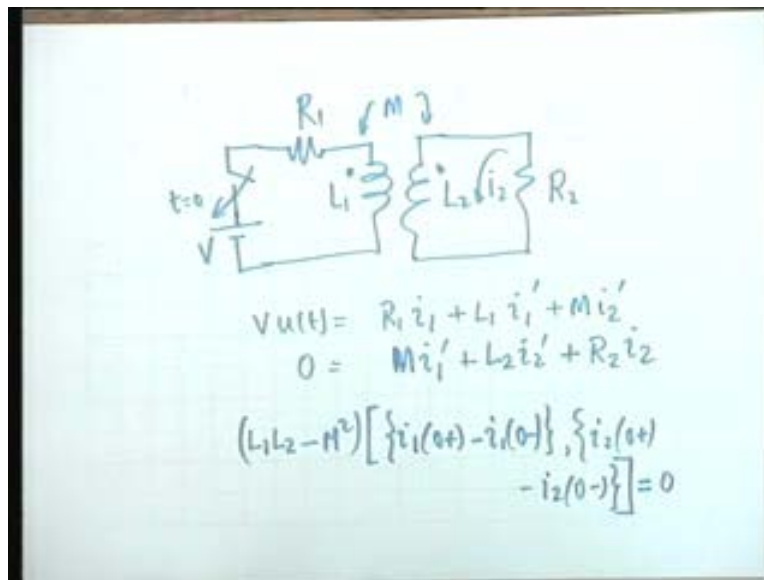 R₁ M
t=0 L₁ L₂ i₂ R₂
V
V u(t) = R₁ i₁ + L₁ i₁′ + M i₂′
0 = M i₁′ + L₂ i₂′ + R₂ i₂
(L₁L₂ – M²) [ { i₁(0+) – i₁(0-) } , { i₂(0+)
– i₂(0-) } ] = 0